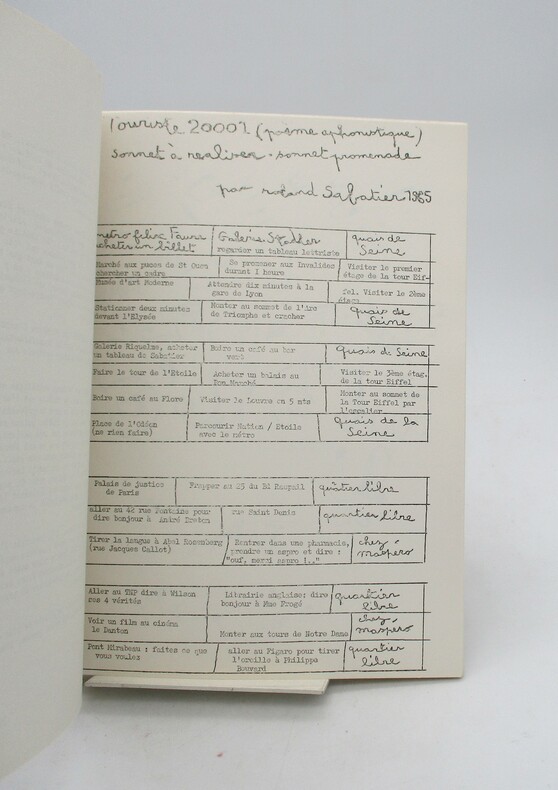 Touriste 20002 (poème aphonistique)
sonnet à realiser - sonnet promenade
par roland Sabatier 1965
métro félix Faure
acheter un billet
Galerie Stadler
regarder un tableau lettriste
quais de
Seine
Marché aux puces de St Ouen
chercher un cadre
Se promener aux Invalides
durant 1 heure
Visiter le premier
étage de la tour Eif-
Musée d'art Moderne
Attendre dix minutes à la
gare de Lyon
fel. Visiter le 2ème
étage
Stationner deux minutes
devant l'Elysée
Monter au sommet de l'Arc
de Triomphe et cracher
quais de
Seine
Galerie Riquelme, acheter
un tableau de Sabatier
Boire un café au bar
vert
quais de Seine
Faire le tour de l'Etoile
Acheter un balais au
Bon Marché
Visiter le 3ème étag.
de la tour Eiffel
Boire un café au Flore
Visiter le Louvre en 5 mts
Monter au sommet de
la Tour Eiffel par
l'escalier
Place de l'Odéon
(ne rien faire)
Parcourir Nation / Etoile
avec le métro
quais de la
Seine
Palais de justice
de Paris
Frapper au 23 du Bd Raspail
quartier libre
aller au 42 rue Fontaine pour
dire bonjour à André Breton
rue Saint Denis
quartier libre
Tirer la langue à Abel Rosenberg
(rue Jacques Callot)
Rentrer dans une pharmacie,
prendre un aspro et dire :
"ouf, merci aspro !.."
chez
maspero
Aller au TNP dire à Wilson
ses 4 vérités
Librairie anglaise: dire
bonjour à Mme Frogé
quartier
libre
Voir un film au cinéma
le Danton
Monter aux tours de Notre Dame
chez
maspero
Pont Mirabeau : faites ce que
vous voulez
aller au Figaro pour tirer
l'oreille à Philippe
Bouvard
quartier
libre